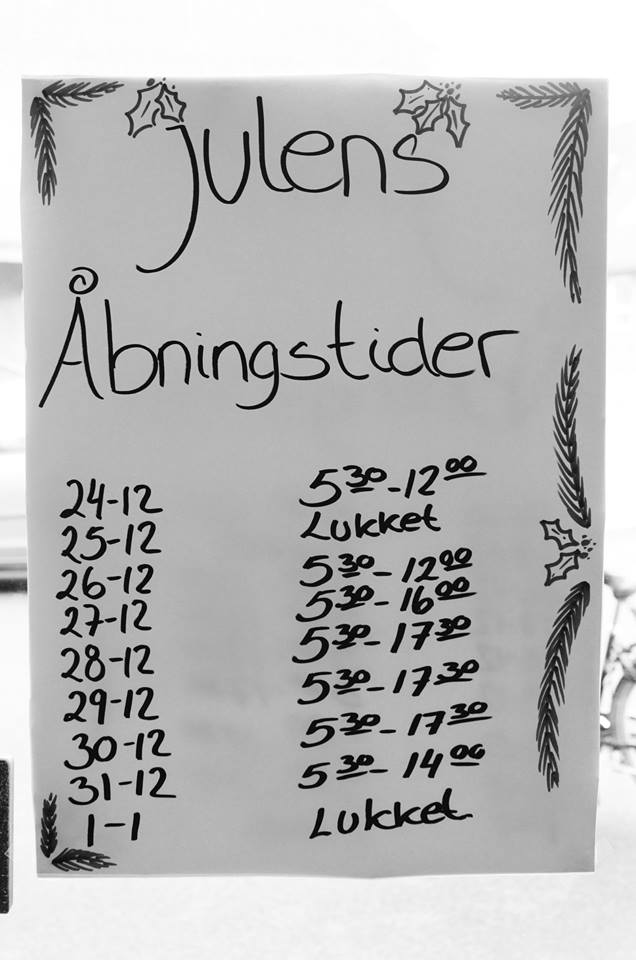 Julens
Åbningstider
24-12 5³⁰-12⁰⁰
25-12 Lukket
26-12 5³⁰-12⁰⁰
27-12 5³⁰-16⁰⁰
28-12 5³⁰-17³⁰
29-12 5³⁰-17³⁰
30-12 5³⁰-17³⁰
31-12 5³⁰-14⁰⁰
1-1 Lukket